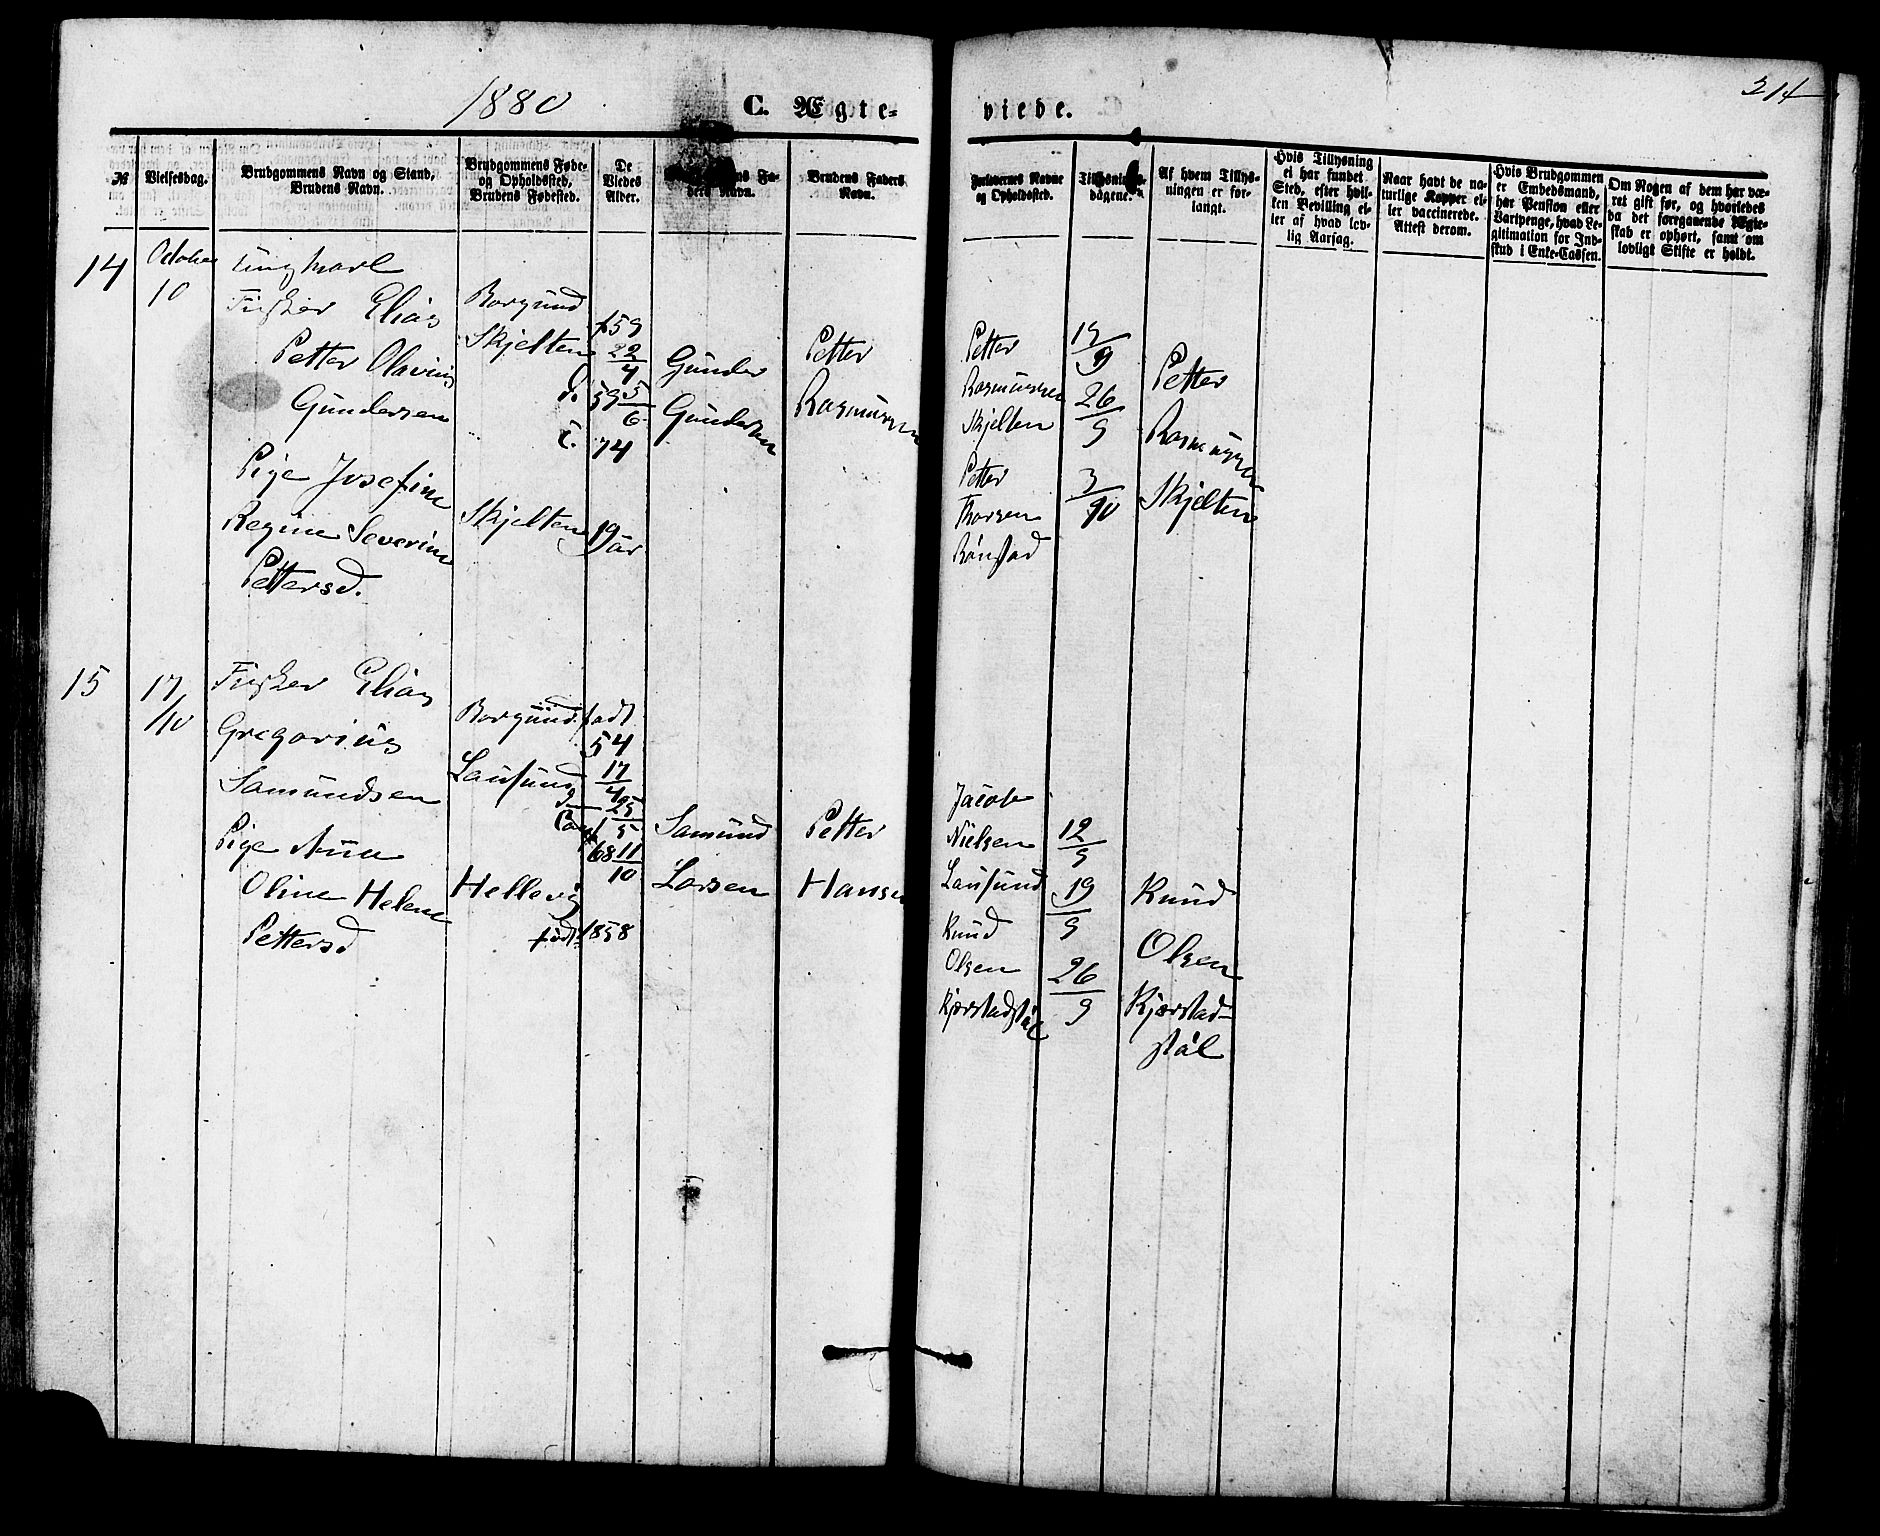 1880
C. Ægte-
viede.
214
№
Vielsesdag.
Brudgommens Navn og Stand,
Brudens Navn.
Brudgommens Føde-
og Opholdssted,
Brudens Fødested.
De
Viedes
Alder.
Fa-
ders Navn.
Brudens Faders
Navn.
Forlovernes Navne
og Opholdssted.
Tillysnings-
dagene.
Af hvem Tillys-
ningen er for-
langt.
Hvis Tillysning
ei har fundet
Sted, efter hvil-
ken Bevilling el-
ler af hvad lov-
lig Aarsag.
Naar havt de na-
turlige Kopper el-
ler vaccinerede.
Attest derom.
Hvis Brudgommen
er Embedsmand,
har Pension eller
Vartpenge, hvad Le-
gitimation for Ind-
skud i Enke-Cassen.
Om Nogen af dem har væ-
ret gift før, og hvorledes
da det foregaaende Ægte-
skab er ophørt, samt om
lovligt Skifte er holdt.
14
October
10
Ungkarl
Fisker Elias
Petter Olavius
Gundersen
Pige Josefine
Regine Severine
Pettersd.
Borgund
Skjelten
d.
c.
Skjelten
f 59
22/4
59 5/6
74
19
år
Gunder
Gundersen
Petter
Rasmussen
Petter
Rasmussen
Skjelten
Petter
Thorsen
Rønstad
19/9
26/9
3/10
Petter
Rasmussen
Skjelten
15
17/10
Fisker Elias
Gregorius
Samundsen
Pige Anne
Oline Helene
Pettersd
Borgund
Laufund
Hellevig
født
født
54
17/4
25/5
68 11/10
1858
Samund
Larsen
Petter
Hansen
Jacob
Nielsen
Laufund
Knud
Olsen
Kjærstadstøl
12/9
19/9
26/9
Knud
Olsen
Kjærstad-
støl